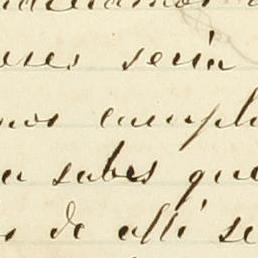 eses seria
mos cumpl
a sabes que
s de allí se